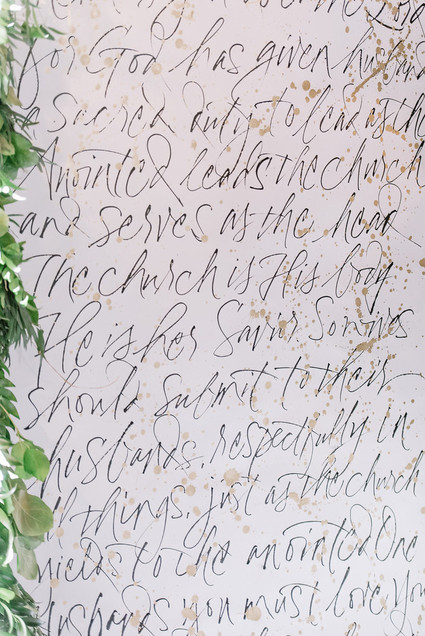 the Lord
for God has given husband
a sacred duty to lead as the
Anointed leads the church
and serves as the head
The church is His body
He is her Savior So wives
should submit to their
husbands, respectfully in
all things, just as the church
yields to the anointed One
Husbands you must love you